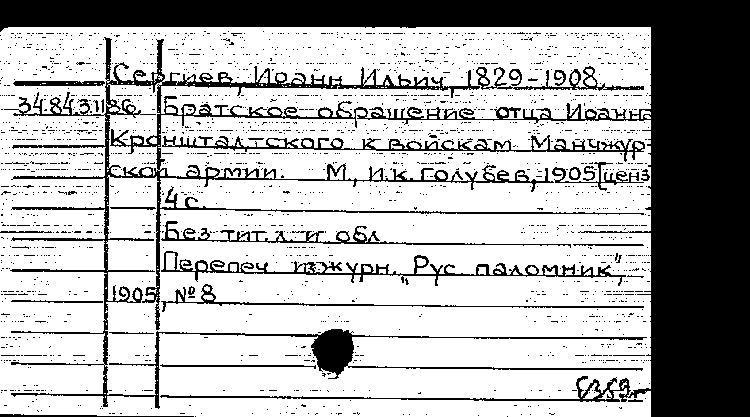 Сергиев, Иоанн Ильич, 1829-1908.
34.84.31186. Братское обращение отца Иоанна
Кронштадтского к войскам Манчжур-
ской армии. М, И.К. Голубев, 1905 [ценз
4 с.
Без тит. л. и обл.
Перепеч из журн. „Рус паломник“,
1905, № 8